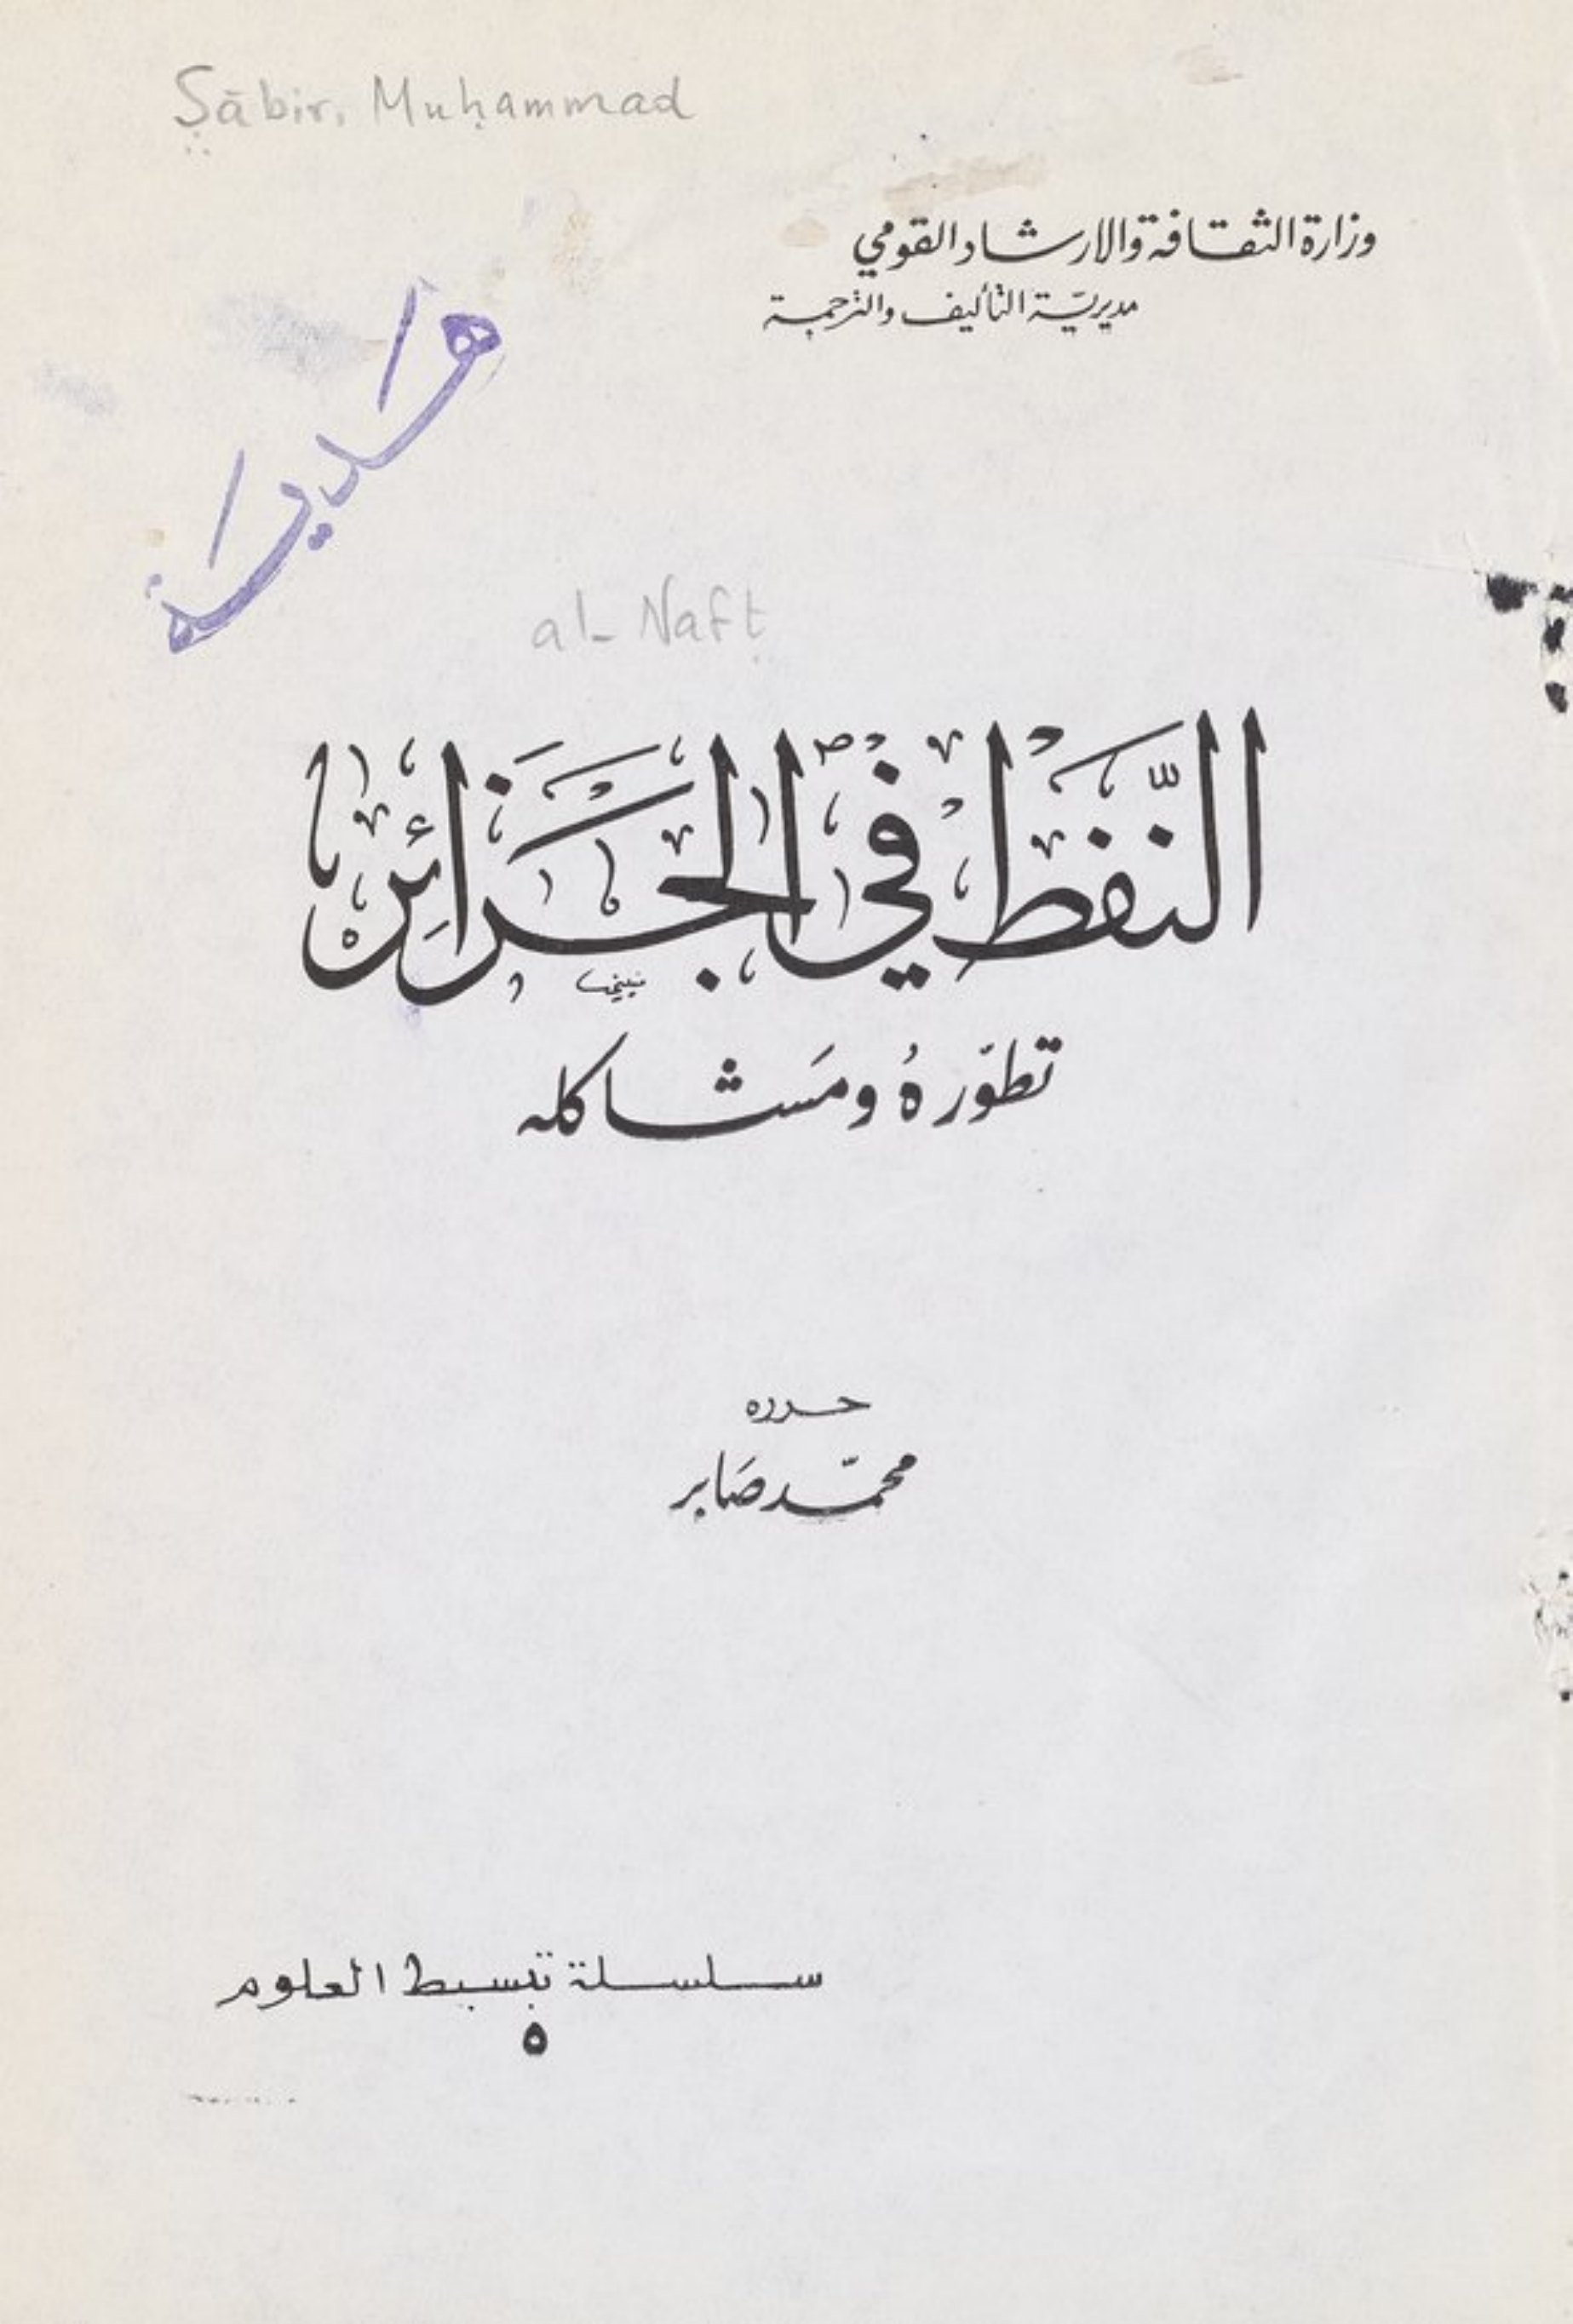 Ṣābir, Muḥammad
وزارة الثقافة والارشاد القومي
مديريّة التأليف والترجمة
هدية
al-Nafṭ
النَّفط في الجزائِر
تطوّرهُ ومَشاكله
حرره
محمّد صَابر
سلسلة تبسيط العلوم
٥